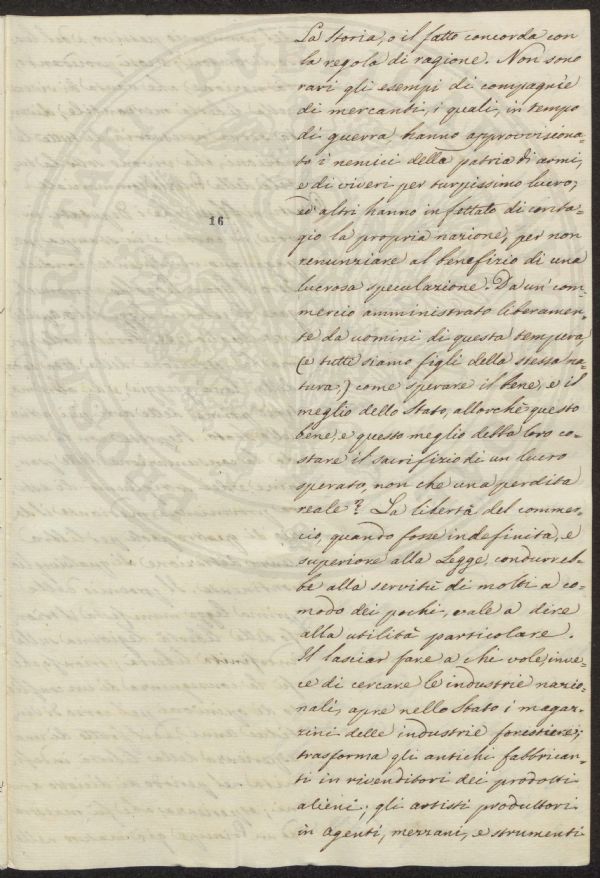 La storia, o il fatto concorda con
la regola di ragione. Non sono
rari gli esempi di compagnie
di mercanti, i quali, in tempo
di guerra hanno approvvisiona=
to i nemici della patria di armi,
e di viveri per turpissimo lucro;
ed altri hanno infettato di conta=
gio la propria nazione, per non
renunziare al benefizio di una
lucrosa speculazione. Da un' com=
mercio amministrato liberamen=
te da uomini di questa tempera,
(e tutti siamo figli della stessa na=
tura,) come sperare il bene, e il
meglio dello Stato, allorchè questo
bene, e questo meglio debba loro co=
stare il sacrifizio di un lucro
sperato, non che una perdita
reale? La libertà del commer=
cio, quando fosse indefinita, e
superiore alla Legge, condurreb=
be alla servitù di molti a co=
modo dei pochi, vale a dire
alla utilità particolare.
Il lasciar fare a chi vole, inve=
ce di cercare le industrie nazio=
nali, apre nello Stato i magaz=
zini delle industrie forestiere;
trasforma gli antichi fabbrican=
ti in rivenditori dei prodotti
alieni; gli artisti produttori
in agenti, mezzani, e strumenti
16